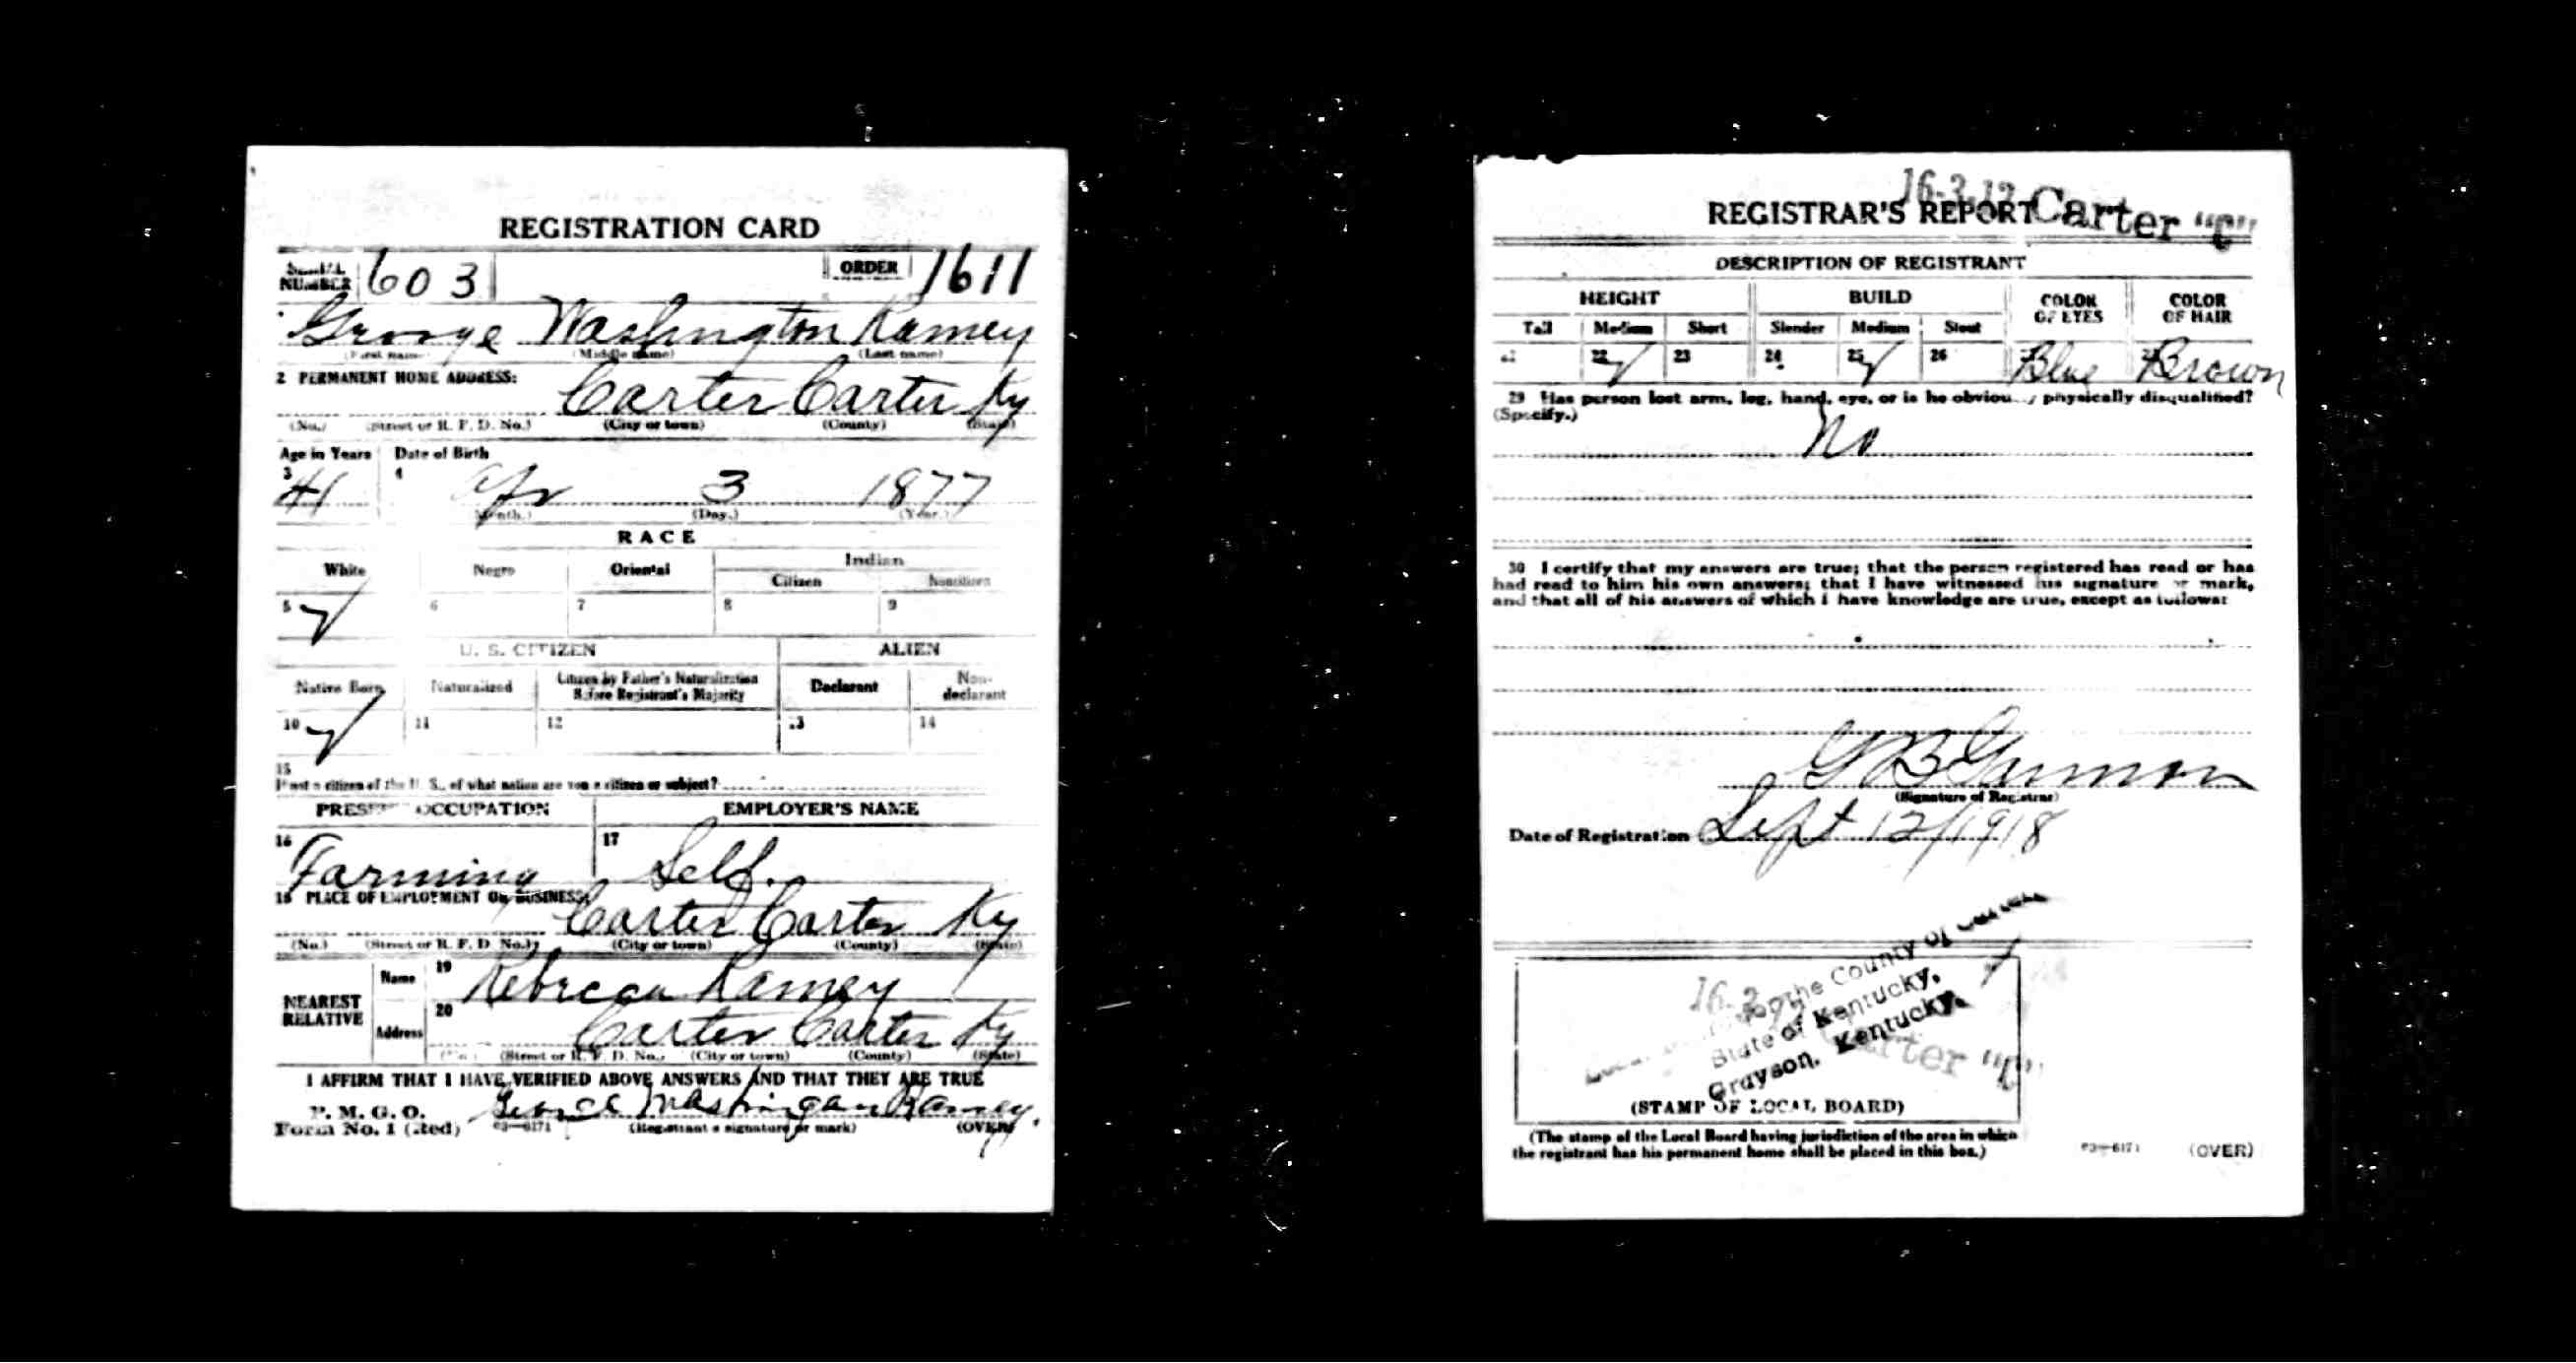 REGISTRATION CARD
SERIAL NUMBER 603 ORDER 1611
George Washington Ramey
(First name) (Middle name) (Last name)
2 PERMANENT HOME ADDRESS:
Carter Carter Ky
(No.) (Street or R. F. D. No.) (City or town) (County) (State)
Age in Years Date of Birth
3 41 4 Apr 3 1877
(Month.) (Day.) (Year.)
RACE
White Negro Oriental Indian
Citizen Noncitizen
5 6 7 8 9
U. S. CITIZEN ALIEN
Native Born Naturalized Citizen by Father's Naturalization Before Registrant's Majority Declarant Non-declarant
10 11 12 13 14
15
If not a citizen of the U. S., of what nation are you a citizen or subject?
PRESENT OCCUPATION EMPLOYER'S NAME
16 Farming 17 Self.
18 PLACE OF EMPLOYMENT OR BUSINESS:
Carter Carter Ky
(No.) (Street or R. F. D. No.) (City or town) (County) (State)
NEAREST RELATIVE Name 19 Rebecca Ramey
Address 20 Carter Carter Ky
(No.) (Street or R. F. D. No.) (City or town) (County) (State)
I AFFIRM THAT I HAVE VERIFIED ABOVE ANSWERS AND THAT THEY ARE TRUE
P. M. G. O.
Form No. 1 (Red) 03—6171 (Registrant's signature or mark) (OVER)
George Ramey
16-3-12 Carter "C"
REGISTRAR'S REPORT
DESCRIPTION OF REGISTRANT
HEIGHT BUILD COLOR OF EYES COLOR OF HAIR
Tall Medium Short Slender Medium Stout
21 22 23 24 25 26 Blue Brown
29 Has person lost arm, leg, hand, eye, or is he obviously physically disqualified?
(Specify.)
No
30 I certify that my answers are true; that the person registered has read or has
had read to him his own answers; that I have witnessed his signature or mark,
and that all of his answers of which I have knowledge are true, except as follows:
(Signature of Registrar)
Date of Registration Sept 12/1918
for the County of Carter
State of Kentucky,
Grayson, Kentucky.
Carter "C"
(STAMP OF LOCAL BOARD)
(The stamp of the Local Board having jurisdiction of the area in which
the registrant has his permanent home shall be placed in this box.)
03—6171 (OVER)